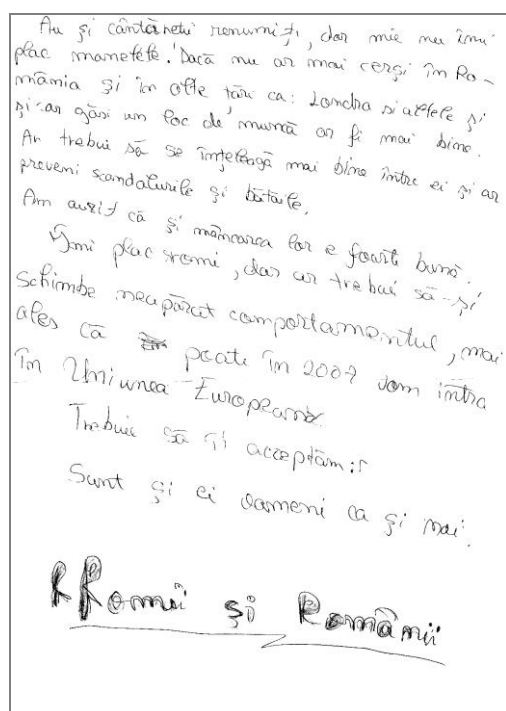 Au și cântăreți renumiți, dar mie nu îmi
plac manelele. Dacă nu ar mai cerși în Ro-
mâmia și în alte țări ca: Londra si altele și
și-ar găsi un loc de muncă ar fi mai bine.
Ar trebui să se înțeleagă mai bine între ei și ar
preveni scandalurile și bătăile.
Am auzit că și mâncarea lor e foarte bună.
Îmi plac rromi, dar ar trebui să-și
schimbe neapărat comportamentul, mai
ales că poate în 2007 vom intra
în Uniunea Europeană.
Trebuie să îi acceptăm!
Sunt și ei oameni ca și noi.
RRomii și Românii